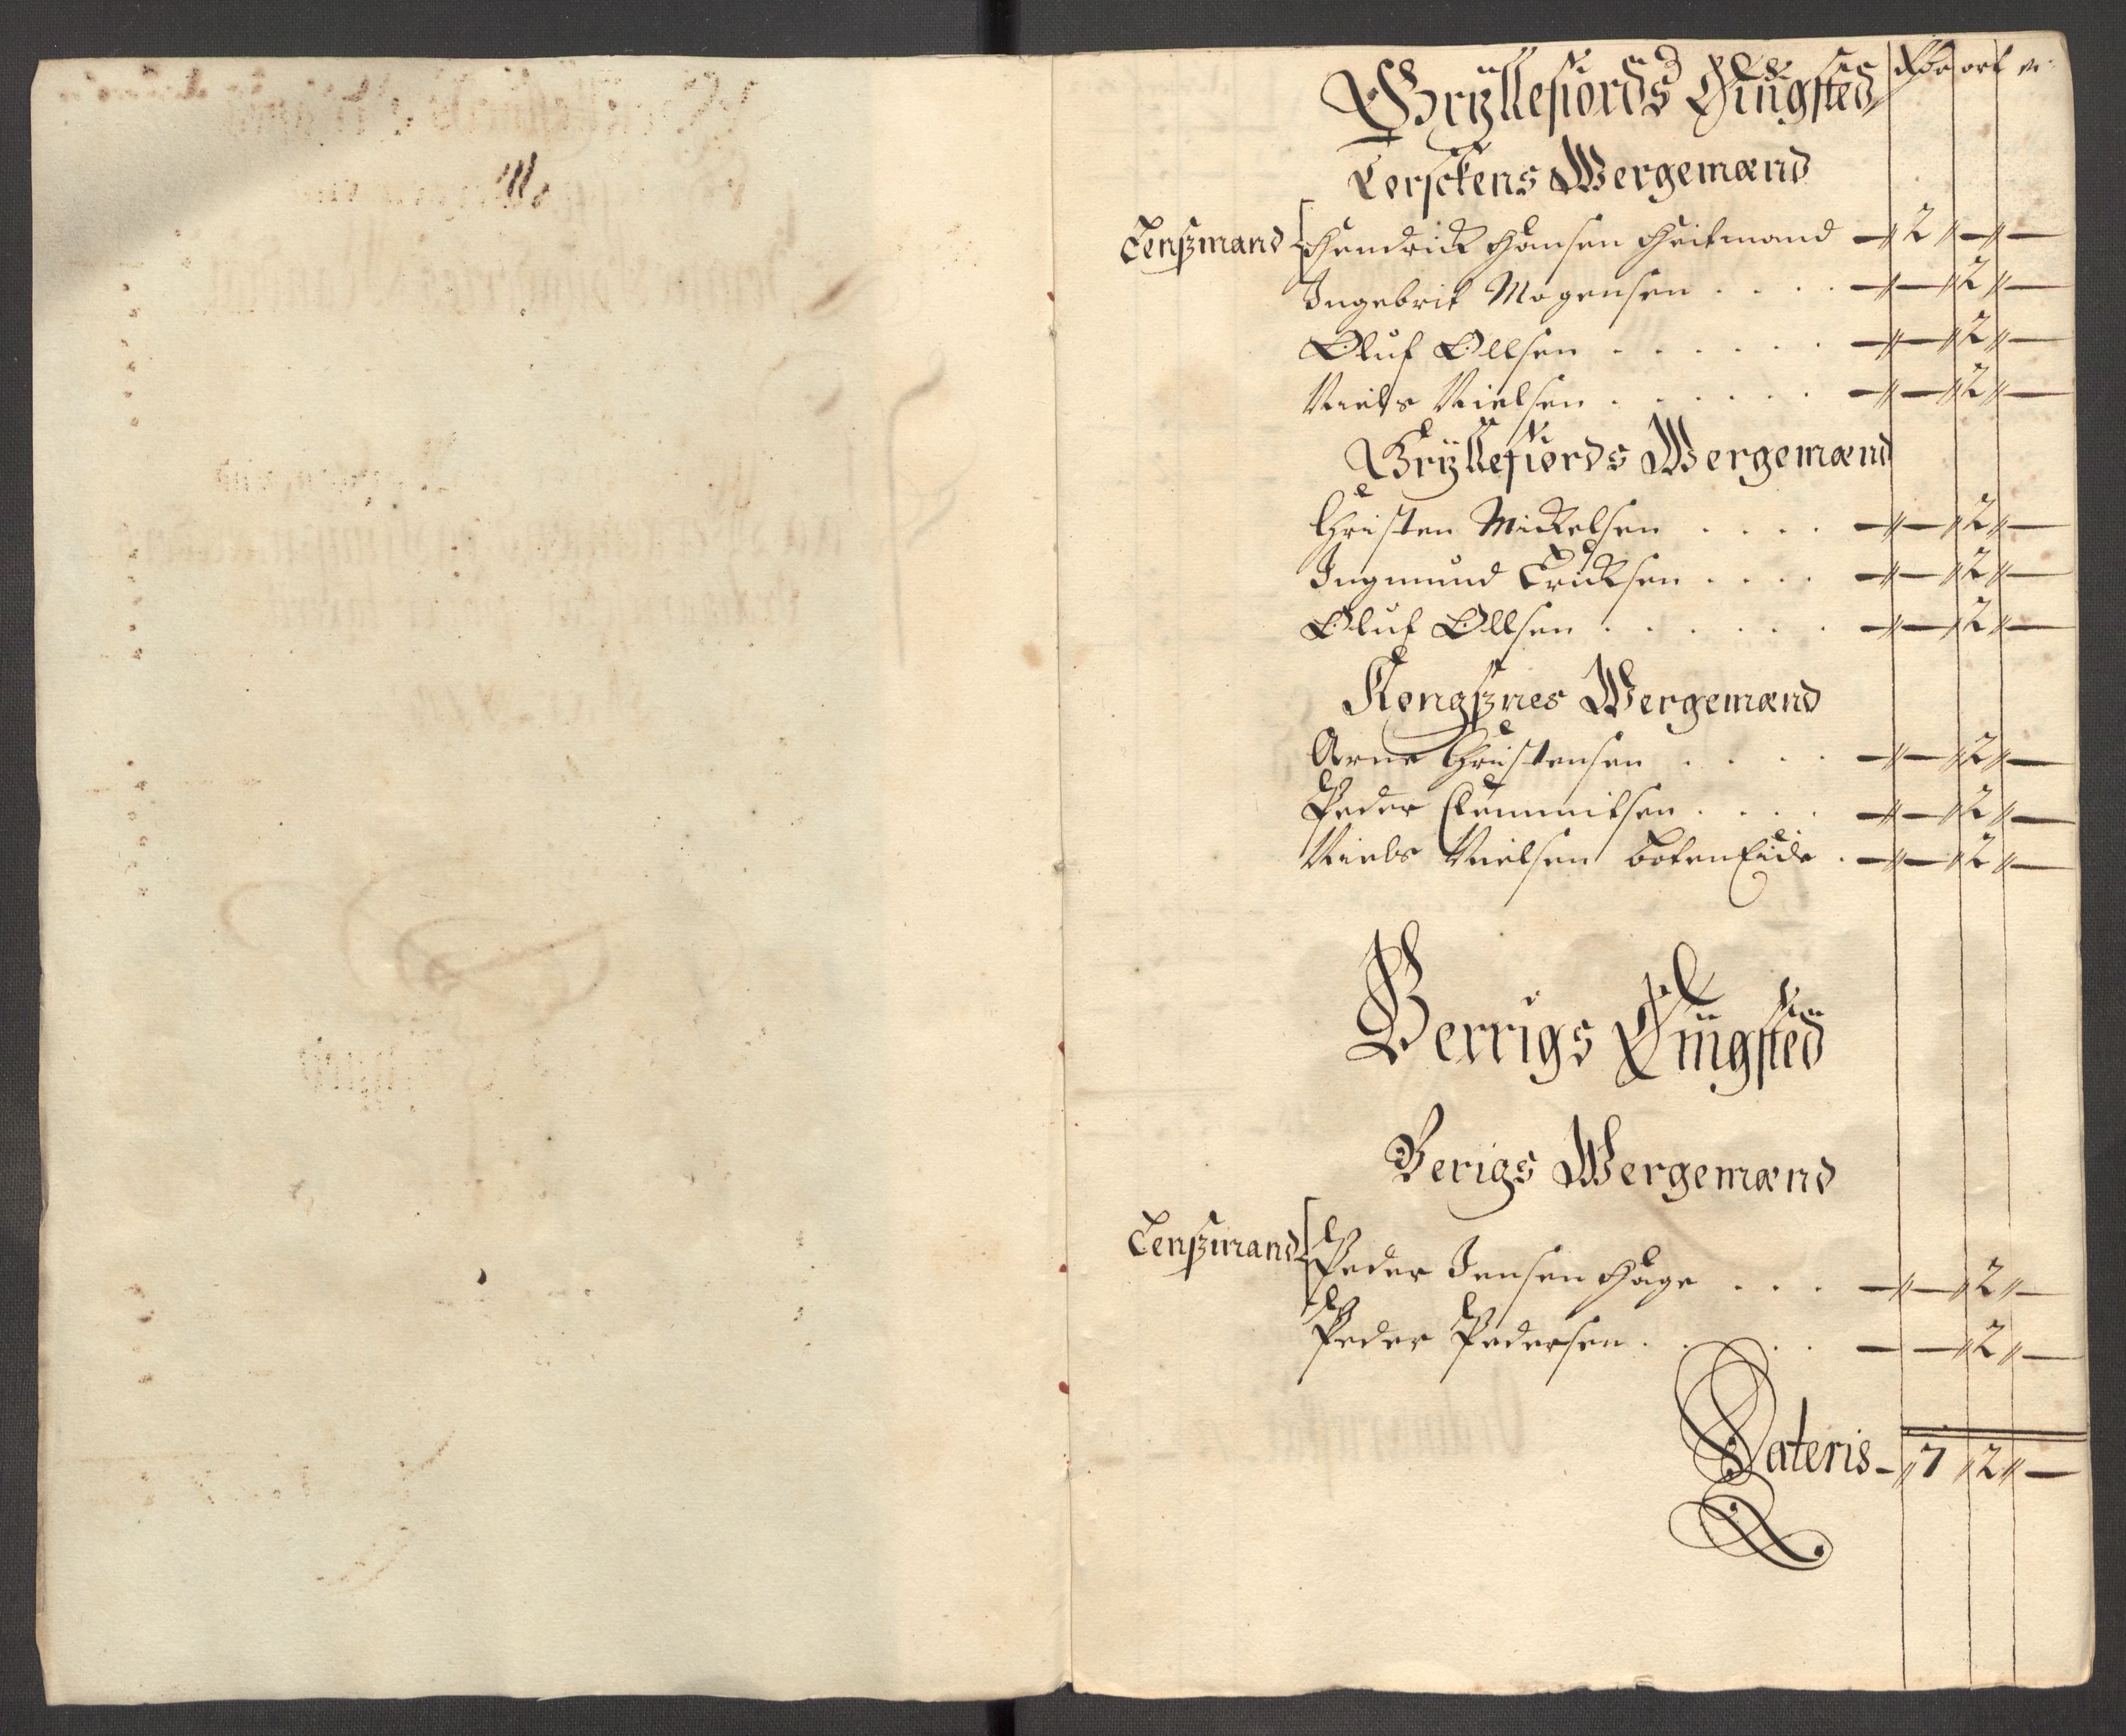 Gryllefiords Tingsted Rdr ort s:
Lerschens Wergemænd
Lenszmand Hendrich Hansen Heitmand – 2 – –
Ingebrit Mogensen . . . . – – 2 –
Oluf Ollsen . . . . . . – – 2 –
Niels Nielsen . . . . . . – – 2 –
Gryllefiords Wergemænd
Christen Mickelsen . . . . – – 2 –
Ingmund Ericksen . . . . – – 2 –
Oluf Ollsen . . . . . . – – 2 –
Kongsznes Wergemænd
Arne Christensen . . . . – – 2 –
Peder Clemmitsen . . . . – – 2 –
Niels Nielsen BotenEide . – – 2 –
Berrigs Tingsted
Berigs Wergemænd
Lenszmand Peder Jensen Hage . . . – – 2 –
Peder Pedersen . . . . – – 2 –
Lateris – 7 2 –